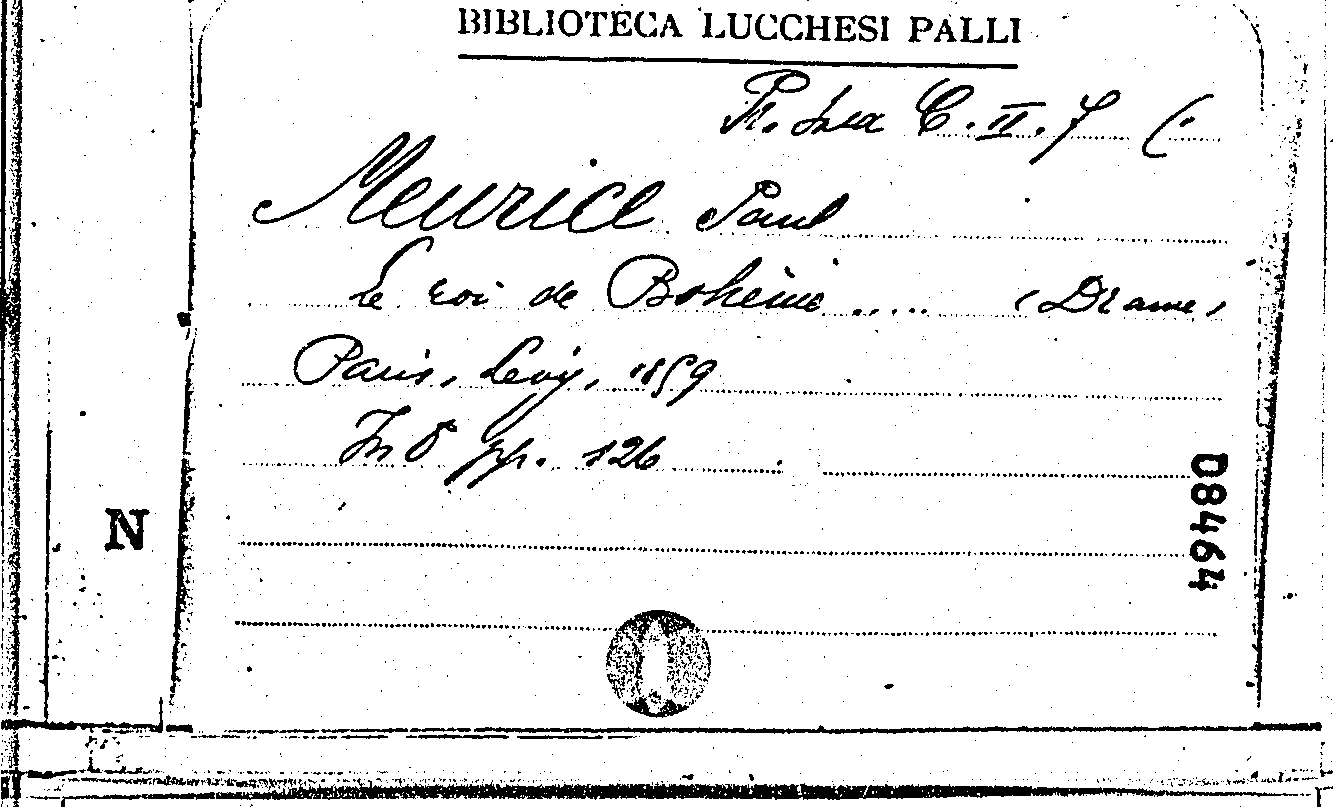 BIBLIOTECA LUCCHESI PALLI
C. II. 7 (
Meurice Paul
Le roi de Bohème ..... (Drame)
Paris, Levy, 1859
In 8 pp. 126
N
D8464